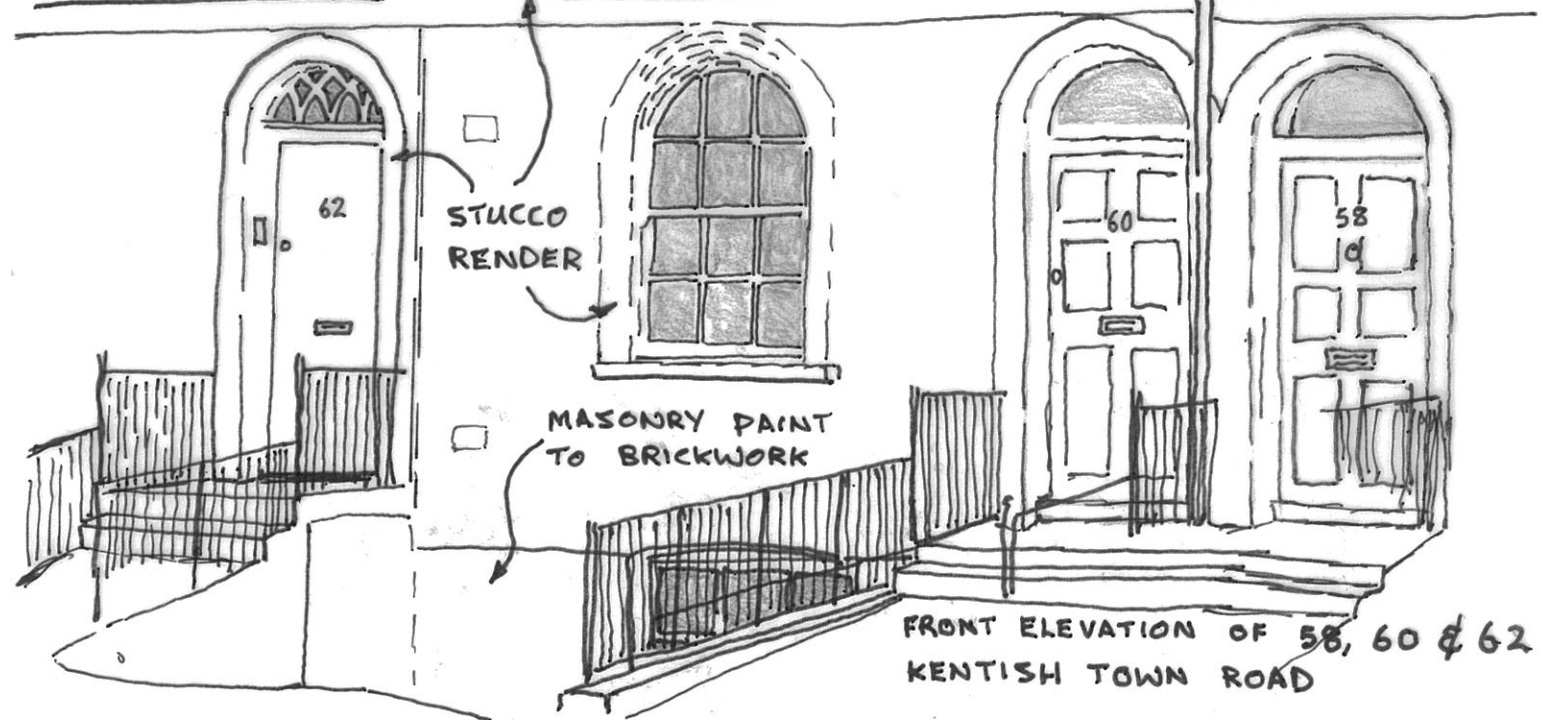 62
STUCCO
RENDER
60
58
MASONRY PAINT
TO BRICKWORK
FRONT ELEVATION OF 58, 60 & 62
KENTISH TOWN ROAD